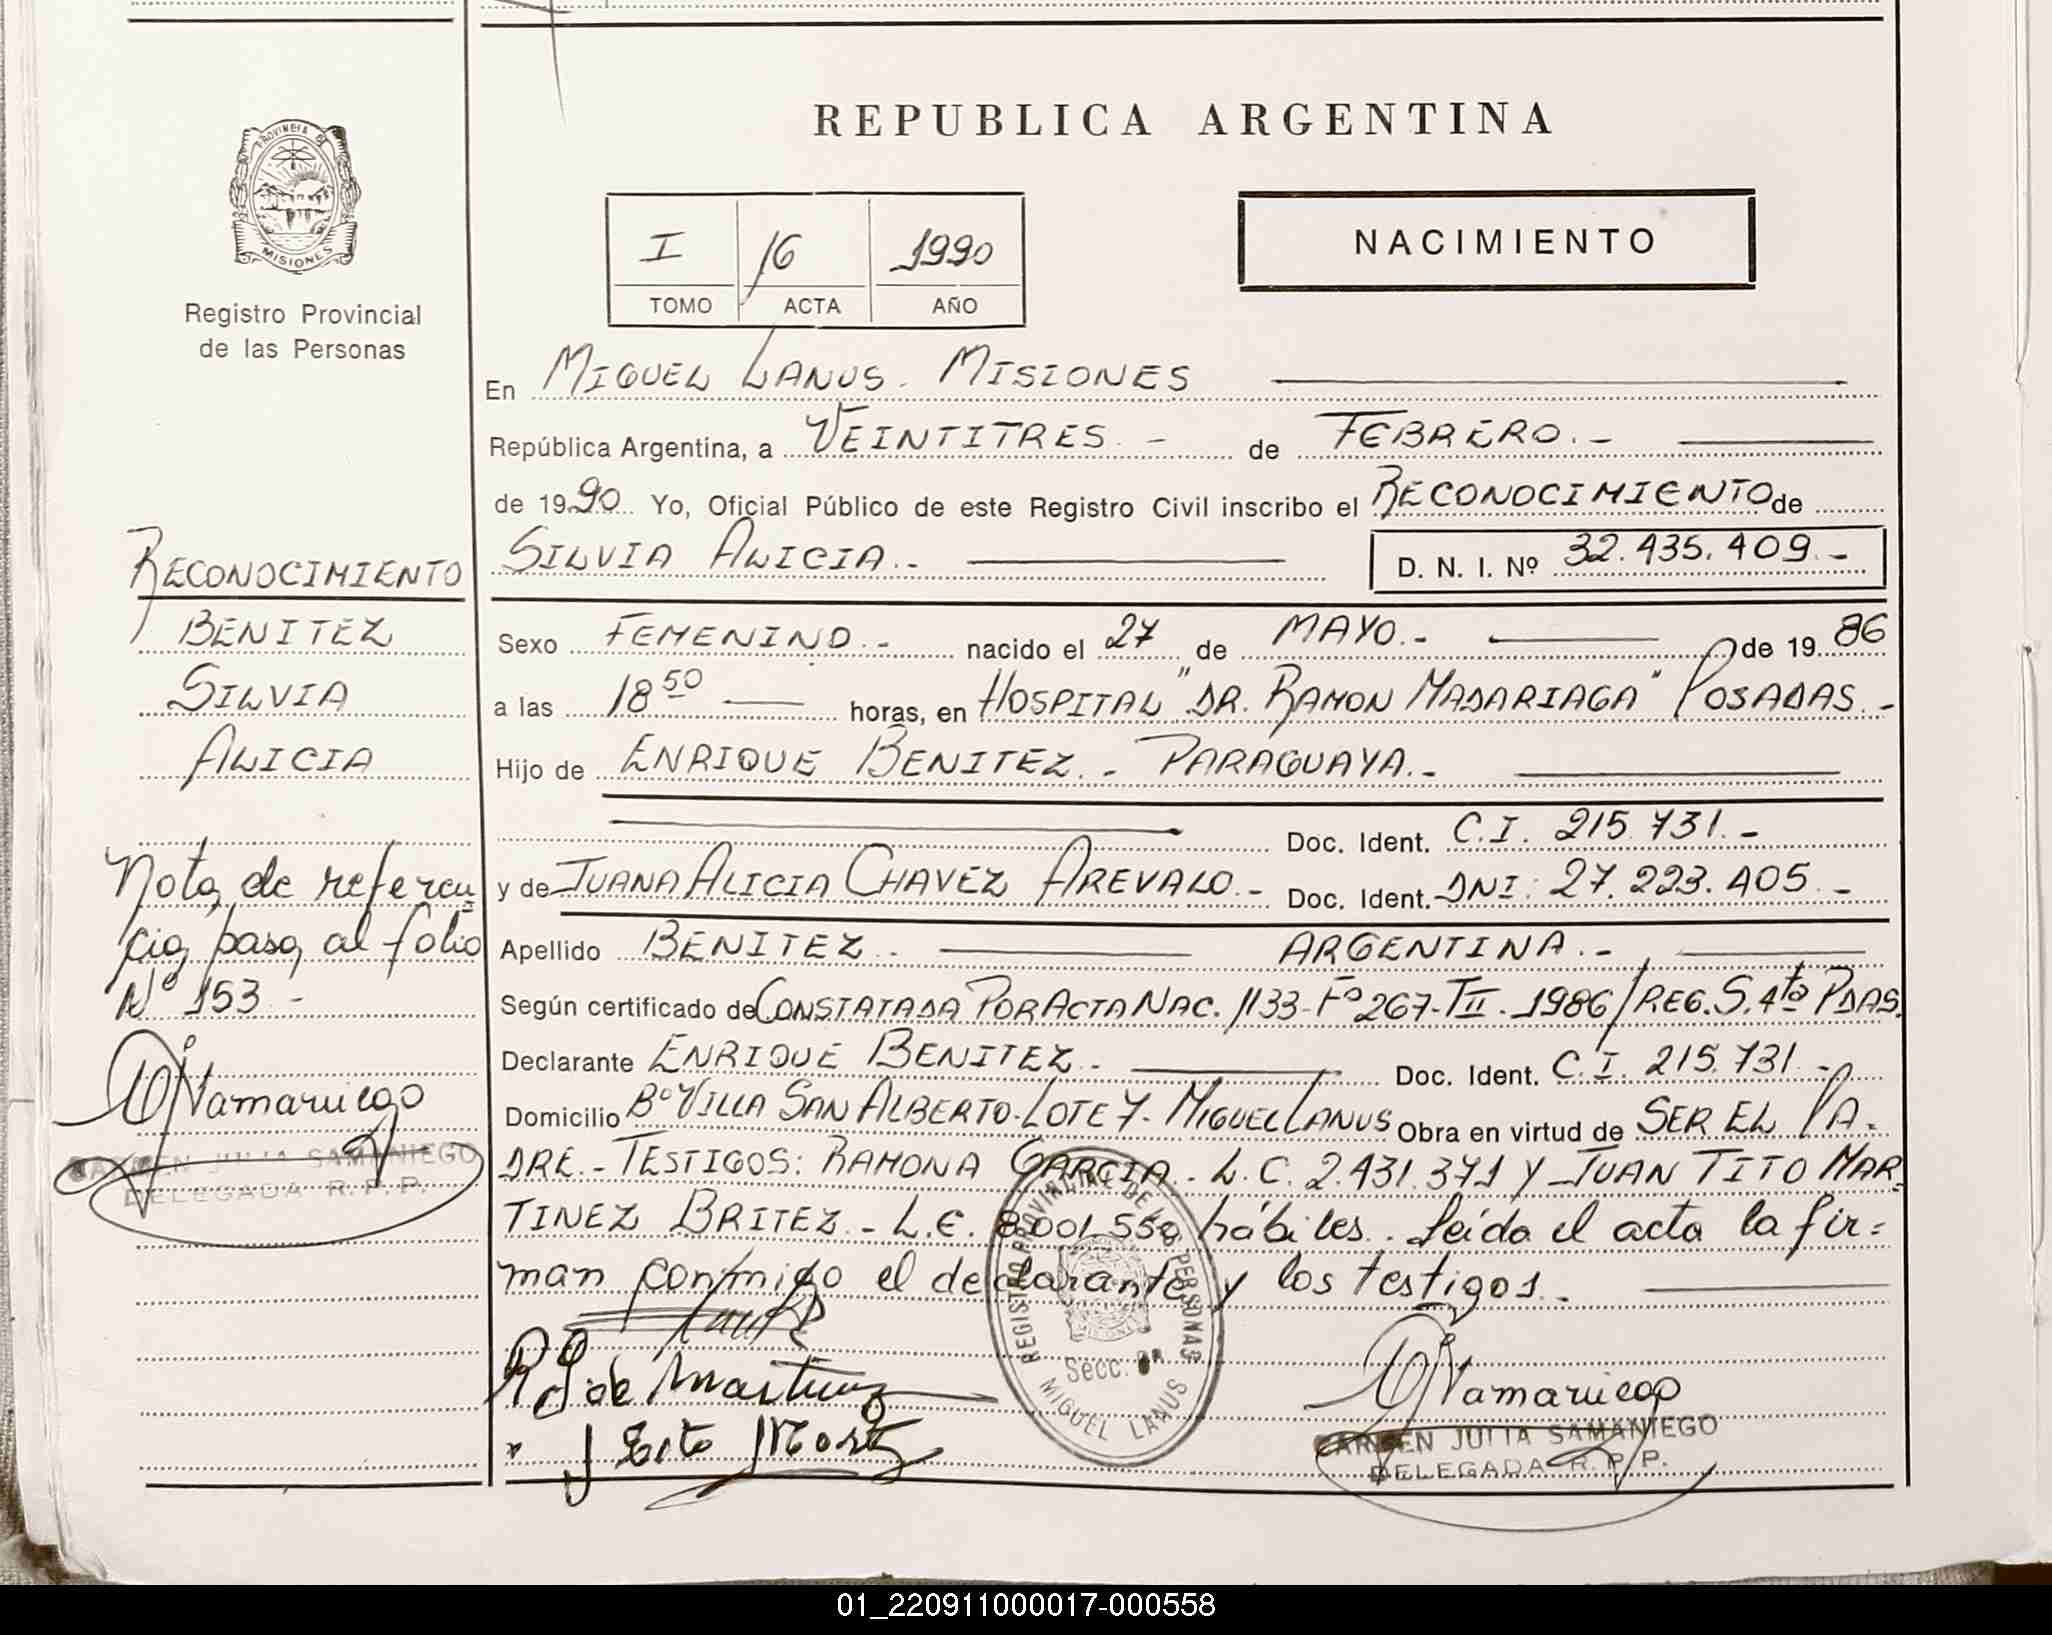 REPUBLICA ARGENTINA
PROVINCIA DE
MISIONES
Registro Provincial
de las Personas
I 16 1990
TOMO ACTA AÑO
NACIMIENTO
En MIGUEL LANUS. MISIONES
República Argentina, a VEINTITRES.- de FEBRERO.-
de 1990. Yo, Oficial Público de este Registro Civil inscribo el RECONOCIMIENTO de
SILVIA ALICIA.- D. N. I. Nº 32.435.409.-
Sexo FEMENINO.- nacido el 27 de MAYO.- de 1986
a las 18 50 horas, en HOSPITAL "DR. RAMON MADARIAGA" POSADAS.-
Hijo de ENRIQUE BENITEZ.- PARAGUAYA.-
Doc. Ident. C.I. 215.731.-
y de JUANA ALICIA CHAVEZ AREVALO.- Doc. Ident. DNI: 27.223.405.-
Apellido BENITEZ.- ARGENTINA.-
Según certificado de CONSTATADA POR ACTA NAC. 1133-Fº 267-TII-1986/REG.S.4ta PDAS.
Declarante ENRIQUE BENITEZ.- Doc. Ident. C.I. 215.731.-
Domicilio Bº VILLA SAN ALBERTO-LOTE 7- MIGUEL LANUS Obra en virtud de SER EL PA-
DRE.- TESTIGOS: RAMONA GARCIA.- L.C. 2.431.371 Y JUAN TITO MAR-
TINEZ BRITEZ.- L.E. 8.001.550 hábiles. Leída el acta la fir=
man conmigo el declarante y los testigos.-
RECONOCIMIENTO
BENITEZ
SILVIA
ALICIA
Nota de referen=
cia pasa al folio
Nº 153.-
CARMEN JULIA SAMANIEGO
DELEGADA R.P.P.
R G de Martinez
J Tito Mart
REGISTRO PROVINCIAL DE LAS PERSONAS
MISIONES
Secc.
MIGUEL LANUS
CARMEN JULIA SAMANIEGO
DELEGADA R.P.P.
01_220911000017-000558